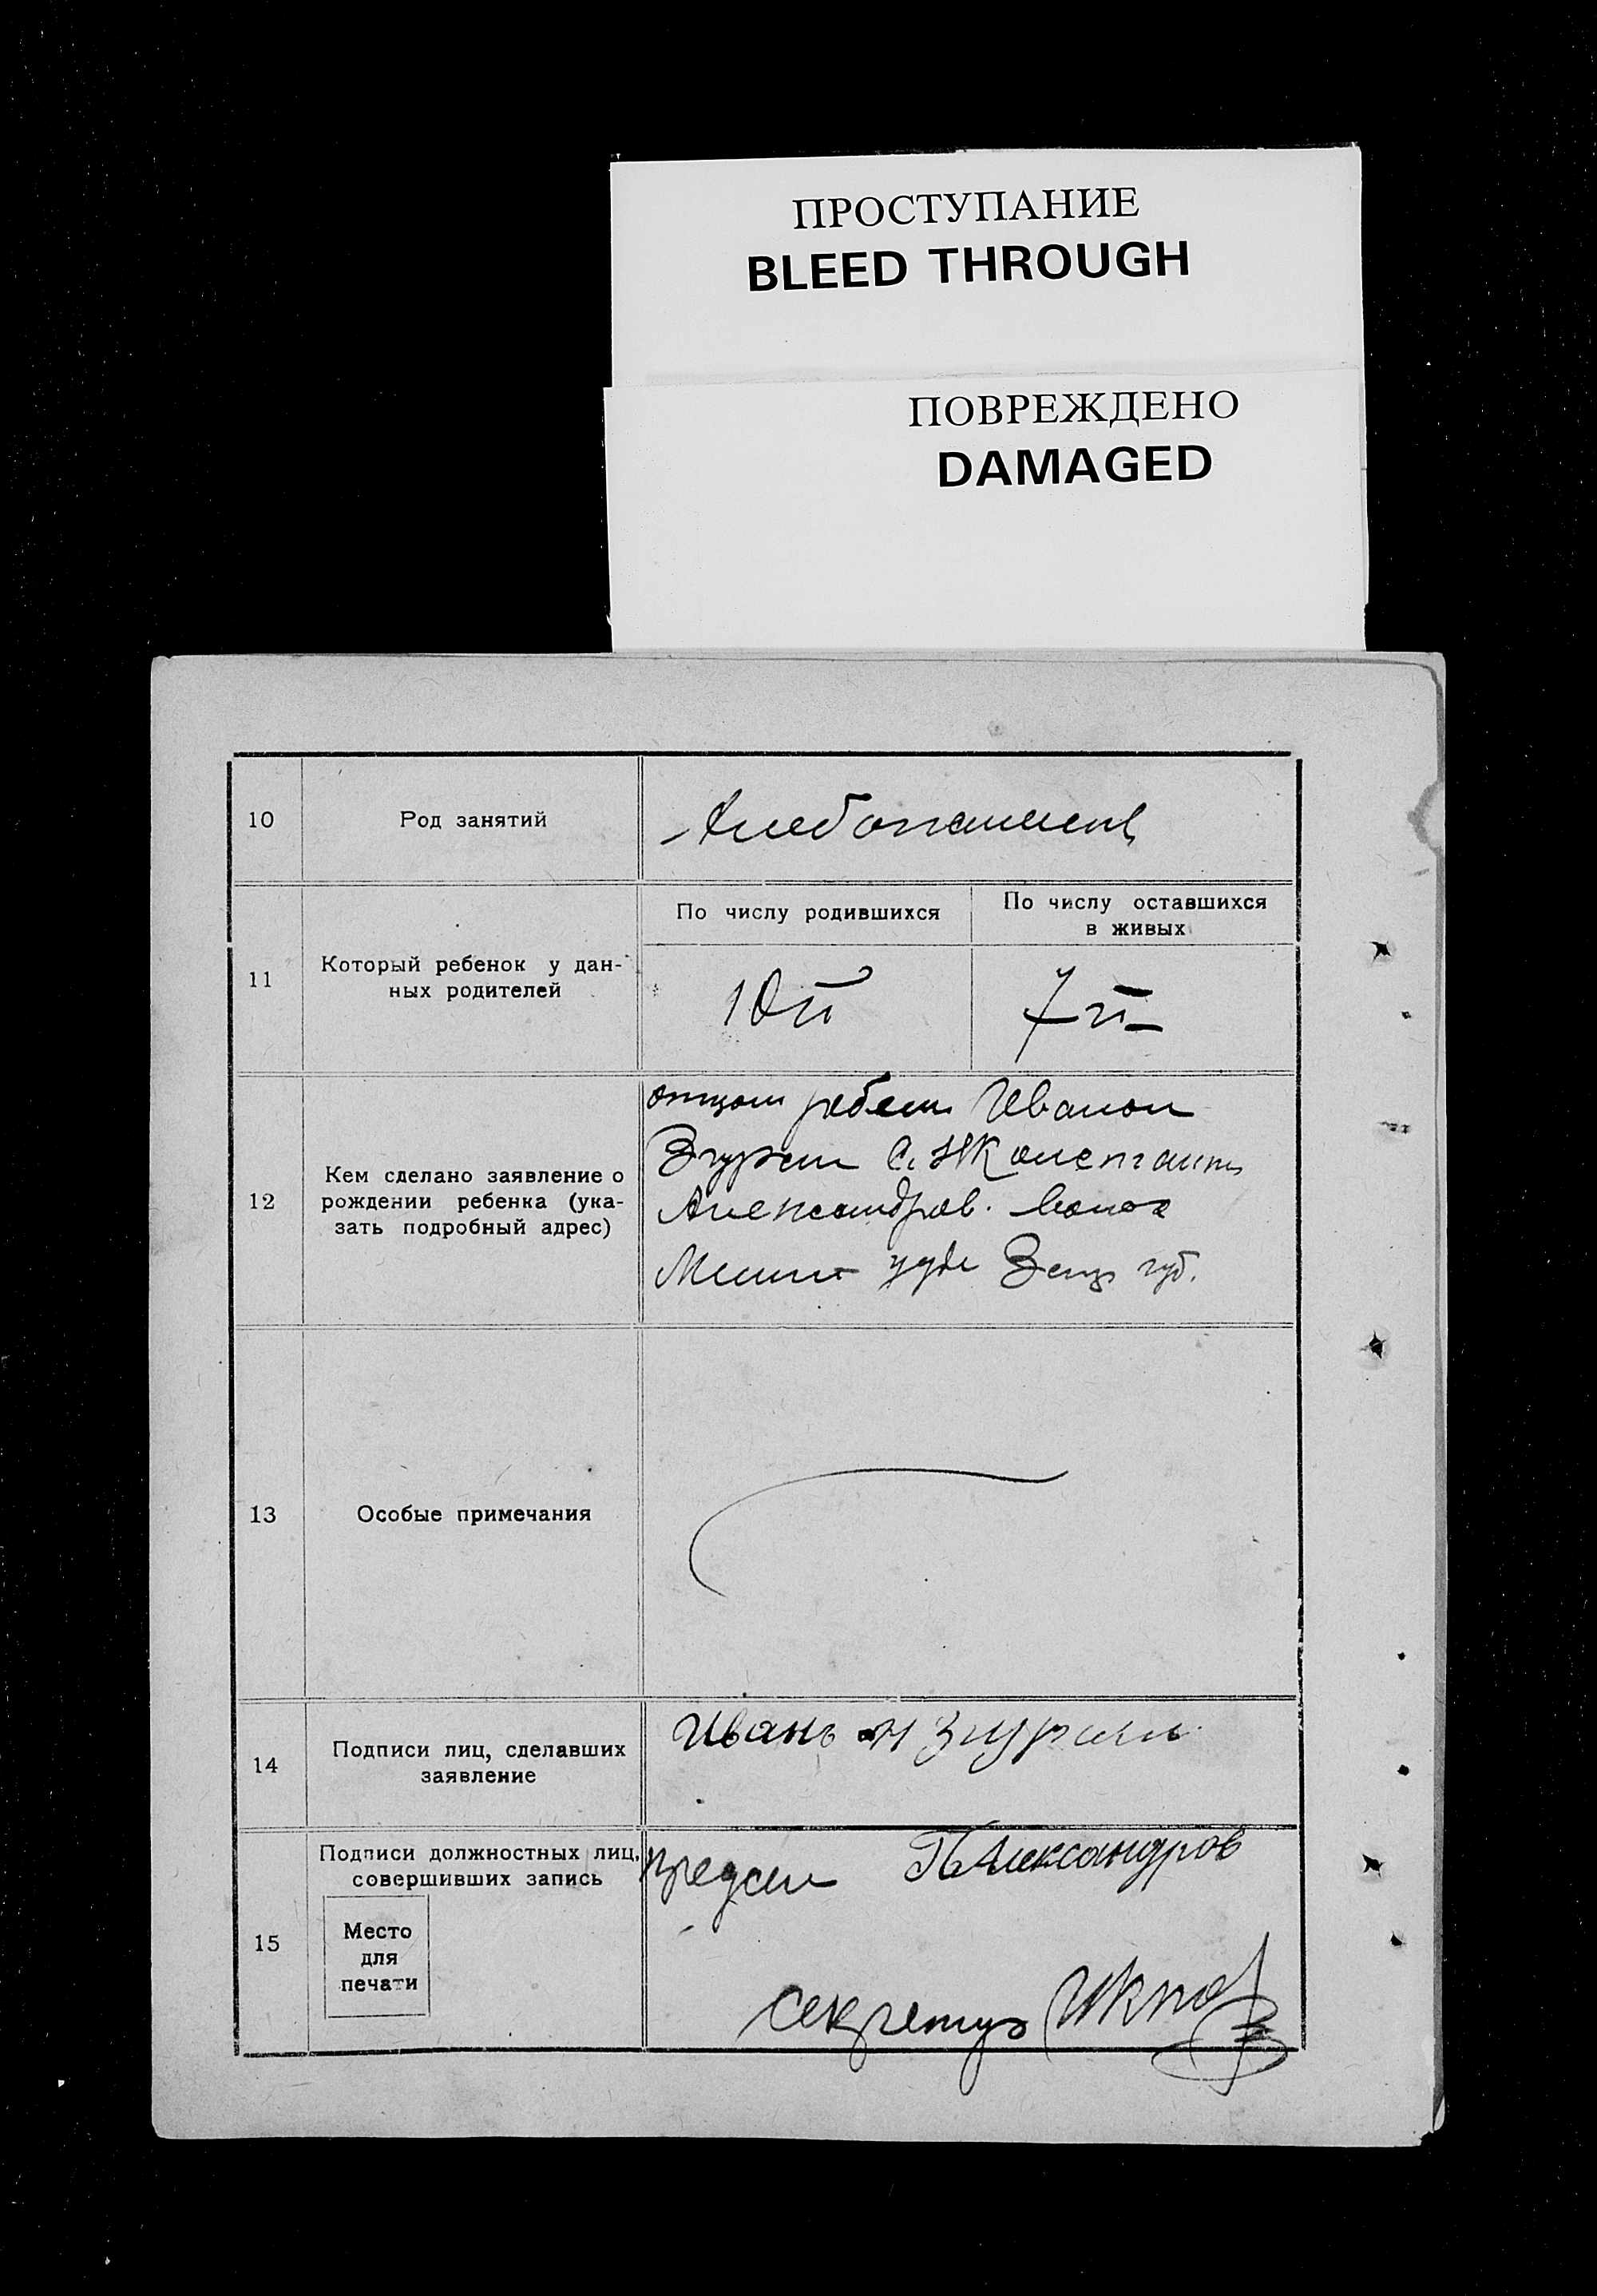 ПРОСТУПАНИЕ
BLEED THROUGH
ПОВРЕЖДЕНО
DAMAGED
10
Род занятий
Хлебопашец
11
Который ребенок у дан-
ных родителей
По числу родившихся
По числу оставшихся
в живых
10й
7й
12
Кем сделано заявление о
рождении ребенка (ука-
зать подробный адрес)
отцом Иваном
Згурски с.
Александров. волос
губ.
13
Особые примечания
14
Подписи лиц, сделавших
заявление
Иванъ
15
Подписи должностных лиц,
совершивших запись
Место
для
печати
Предсе Александров
секретар